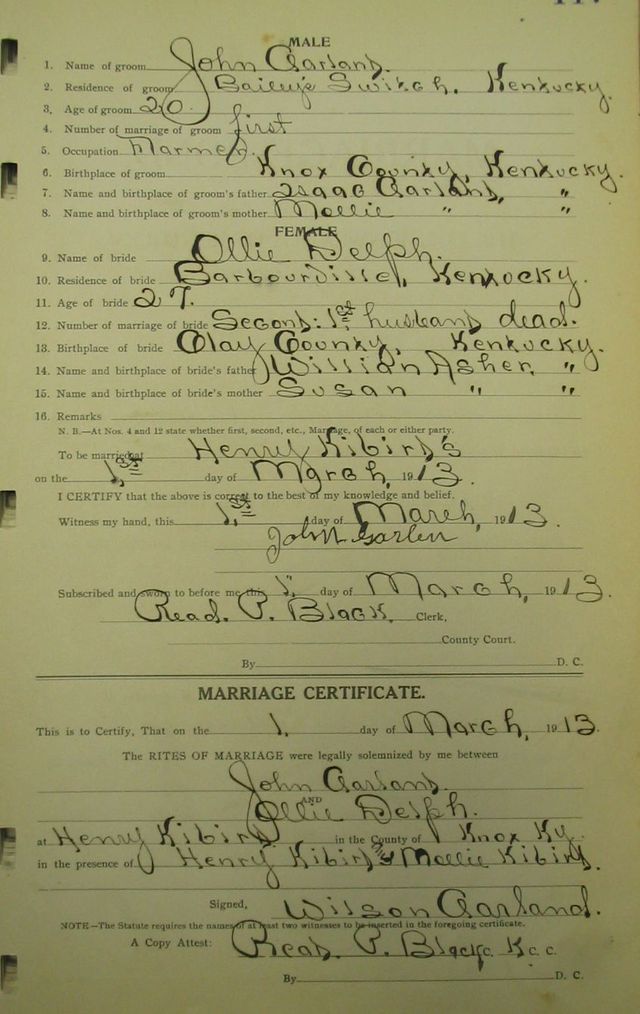 MALE
1. Name of groom John Garland.
2. Residence of groom Bailey's Switch, Kentucky.
3. Age of groom 20.
4. Number of marriage of groom first
5. Occupation Farmer.
6. Birthplace of groom Knox County, Kentucky.
7. Name and birthplace of groom's father Isaac Garland, "
8. Name and birthplace of groom's mother Mollie " "
FEMALE
9. Name of bride Ollie Delph.
10. Residence of bride Barbourville, Kentucky.
11. Age of bride 27.
12. Number of marriage of bride Second: 1st husband dead.
13. Birthplace of bride Clay County, Kentucky.
14. Name and birthplace of bride's father William Asher, "
15. Name and birthplace of bride's mother Susan " "
16. Remarks
N. B.—At Nos. 4 and 12 state whether first, second, etc., Marriage, of each or either party.
To be married at Henry Kibird's
on the 1st day of March, 1913.
I CERTIFY that the above is correct to the best of my knowledge and belief.
Witness my hand, this 1st day of March, 1913.
John Garlen
Subscribed and sworn to before me this 1. day of March, 1913.
Read. P. Black. Clerk,
County Court.
By D. C.
MARRIAGE CERTIFICATE.
This is to Certify, That on the 1. day of March, 1913.
The RITES OF MARRIAGE were legally solemnized by me between
John Garland.
AND
Ollie Delph.
at Henry Kibirds in the County of Knox Ky.
in the presence of Henry Kibird & Mollie Kibird.
Signed, Wilson Garland.
NOTE—The Statute requires the names of at least two witnesses to be inserted in the foregoing certificate.
A Copy Attest: Read. P. Black c. K c. c.
By D. C.